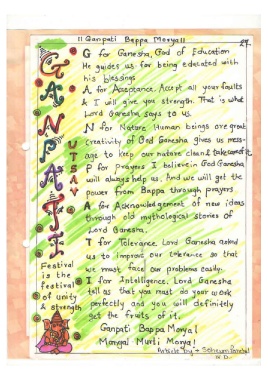 || Ganpati Bappa Morya ||
G for Ganesha, God of Education
He guides us for being educated with
his blessings
A for Acceptance. Accept all your faults
& I will give you strength. That is what
Lord Ganesha says to us.
N for Nature Human beings are great
creativity of God Ganesha gives us mess-
age to keep our nature clean & take care of it.
P for Prayers I believe in God Ganesha
will always help us. And we will get the
power from Bappa through prayers
A for Acknowledgement of new ideas
through old mythological stories of
Lord Ganesha.
T for Tolerance. Lord Ganesha asked
us to improve our tolerance so that
we must face our problems easily.
I for Intelligence. Lord Ganesha
tell us that you must do your work
perfectly and you will definitely
get the fruits of it.
Ganpati Bappa Morya!
Mangal Murti Morya!
Article by
GANPATI
UTSAV
Festival
is the
festival
of unity
& strength